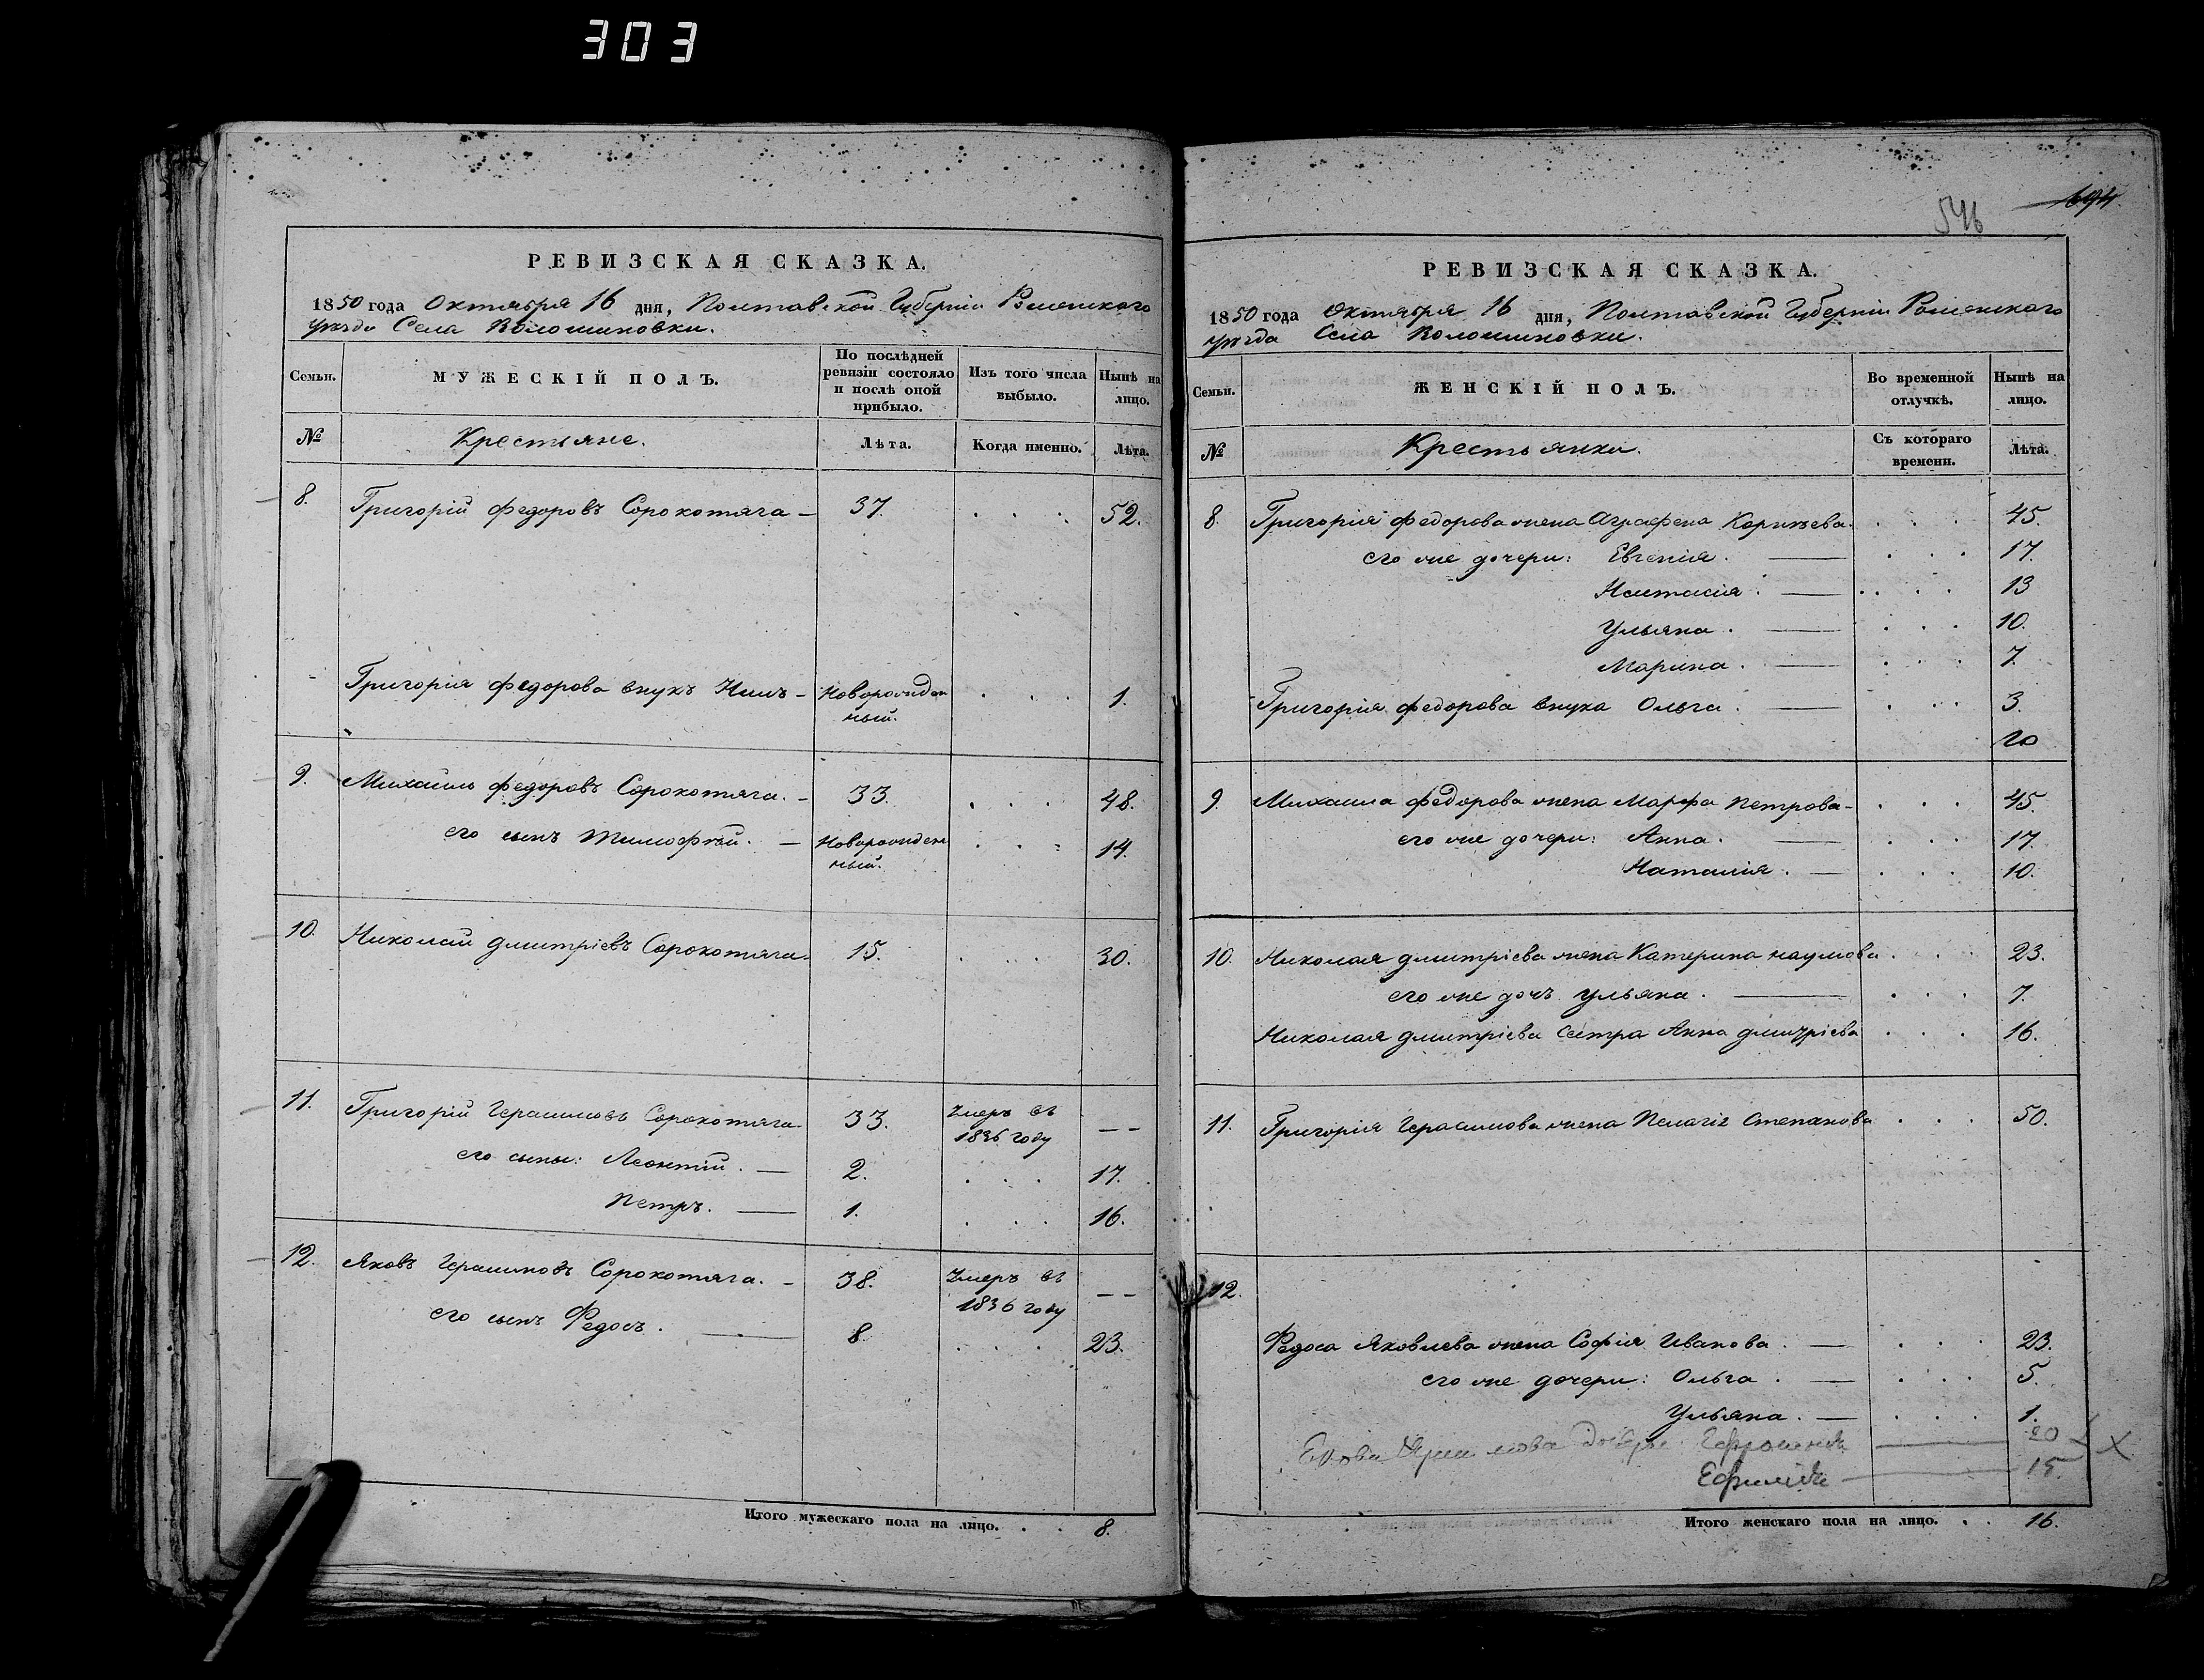 303
546
694
РЕВИЗСКАЯ СКАЗКА.
1850 года Октября 16 дня, Полтавской Губерніи Роменскаго
уѣзда Села Волошиновки.
Семьи.
МУЖЕСКІЙ ПОЛЪ.
По послѣдней ревизіи состояло и послѣ оной прибыло.
Изъ того числа выбыло.
Нынѣ на лицо.
№
Крестьяне.
Лѣта.
Когда именно.
Лѣта.
8. Григорій Федоровъ Сорокотяга — 37. . . . 52.
Григорія Федорова внукъ — Новорожден . . . 1.
ный.
9. Михаилъ Федоровъ Сорокотяга. — 33. . . . 48.
его сынъ Тимофѣй. — Новорожден . . . 14.
ный.
10. Николай Дмитріевъ Сорокотяга. 15. . . . 30.
11. Григорій Герасимовъ Сорокотяга 33. Умеръ въ — —
1836 году
его сыны: Леонтій. — 2. . . . 17.
Петръ. — 1. . . . 16.
12. Яковъ Герасимовъ Сорокотяга. — 38. Умеръ въ — —
1836 году
его сынъ Федосъ. — 8. . . . 23.
Итого мужескаго пола на лицо. . . 8.
РЕВИЗСКАЯ СКАЗКА.
1850 года Октября 16 дня, Полтавской Губерніи Роменскаго
уѣзда Села Волошиновки.
Семьи.
ЖЕНСКІЙ ПОЛЪ.
Во временной отлучкѣ.
Нынѣ на лицо.
№
Крестьянки.
Съ котораго времени.
Лѣта.
8. Григорія Федорова жена Аграфена Корнѣева. . . . 45.
его же дочери: Евгенія. — . . . 17.
Настасія. — . . . 13
Ульяна. — . . . 10.
Марина. — . . . 7.
Григорія Федорова внука Ольга. — . . . 3.
9. Михаила Федорова жена Марфа Петрова — . . . 45.
его же дочери: Анна. — . . . 17.
Наталія. — . . . 10.
10. Николая Дмитріева жена Катерина Наумова . . . 23.
его же дочь Ульяна. — . . . 7.
Николая Дмитріева Сестра Анна Дмитріева . . . 16.
11. Григорія Герасимова жена Пелагія Степанова . . . 50.
12.
Федоса Яковлева жена Софія Иванова. — . . . 23.
его же дочери: Ольга. — . . . 5.
Ульяна. — . . . 1.
20
15.
Итого женскаго пола на лицо. . . 16.